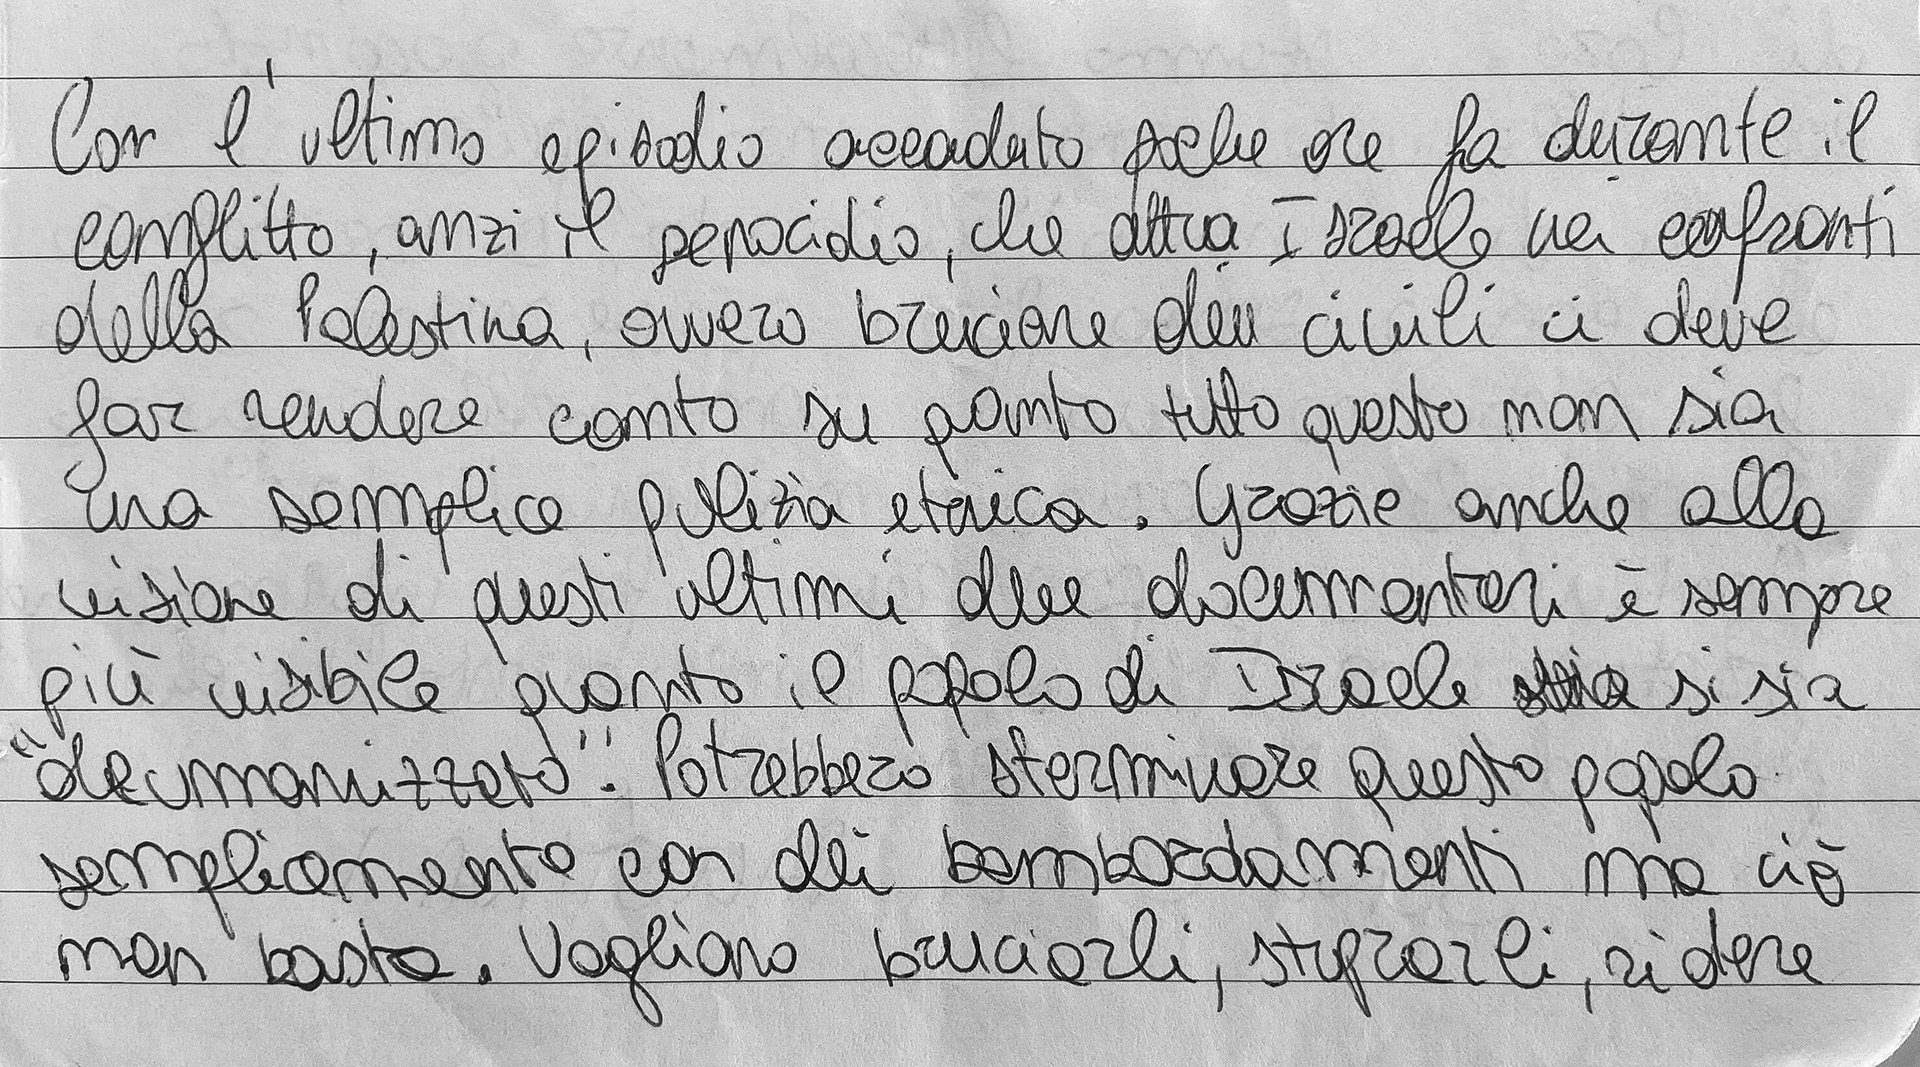 Con l'ultimo episodio accaduto poche ore fa durante il
conflitto, anzi il genocidio, che attua Israele nei confronti
della Palestina, ovvero bruciare dei civili ci deve
far rendere conto su quanto tutto questo non sia
una semplice pulizia etnica. Grazie anche alla
visione di questi ultimi due documentari è sempre
più visibile quanto il popolo di Israele si sia
"deumanizzato". Potrebbero sterminare questo popolo
semplicemente con dei bombardamenti ma ciò
non basta. Vogliono bruciarli, stuprarli, ridere